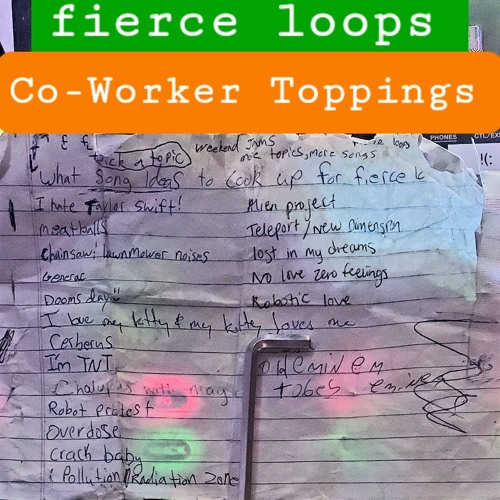 fierce loops
Co-Worker Toppings
PHONES
Weekend Jams
Pick a topic
more topics, more songs
loops
What Song Ideas to Cook up for fierce
I hate Taylor Swift!
Alien project
meatballs
Teleport/new dimension
Chainsaw! lawnmower noises
lost in my dreams
General
No love zero feelings
Doomsday
Robotic love
I love my kitty & my kitty loves me
Cerberus
I'm TNT
old eminem
with
tobes eminem
Robot protest
Overdose
crack baby
Pollution/Radiation Zone